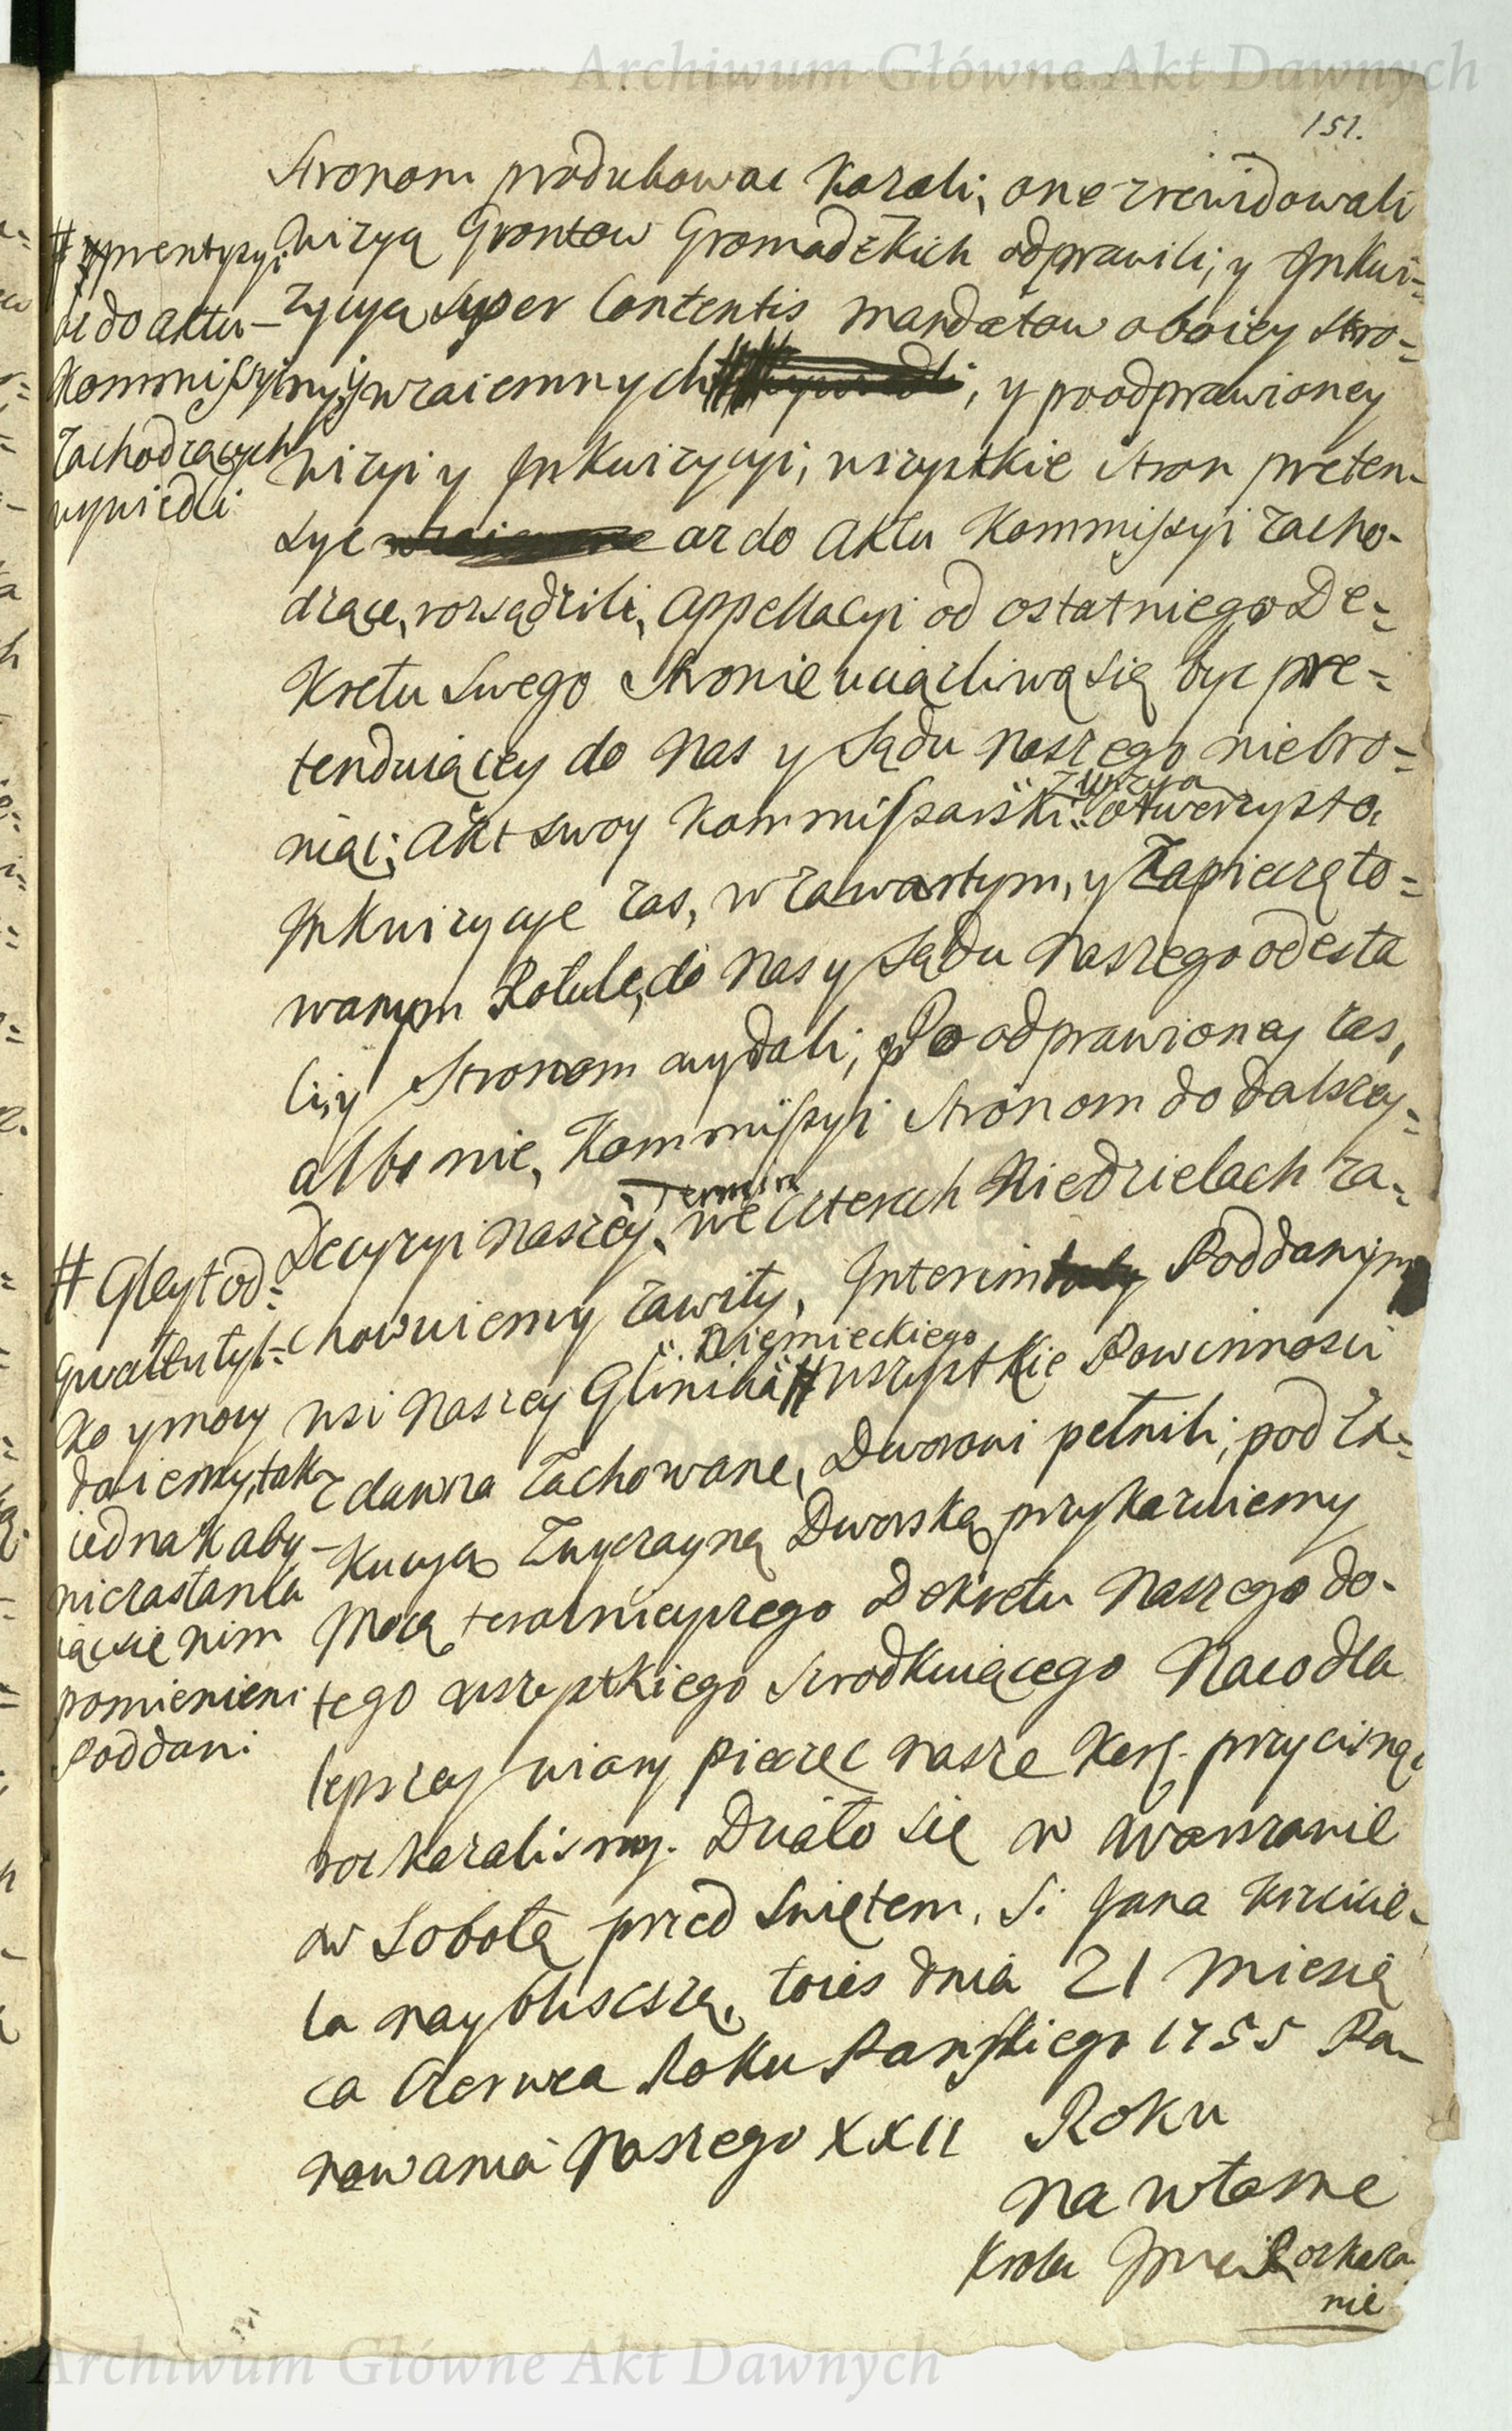 Archiwum Główne Akt Dawnych
151.
Stronom produkować kazali, one zrewidowali
wizyą Grontow Gromadzkich odprawili, y Inkwi=
zycyą super Contentis mandatow oboiey stro=
wzaiemnych #, y po odprawioney
wizyi y Inkwizycyi, wszystkie stron preten=
sye az do Aktu Kommissyi zacho=
dzące, rozsądzili, Appellacyi od ostatniego De=
kretu swego Stronie uciązliwą się być pre=
tenduiącey do nas y Sądu naszego niebro=
niąc; Akt swoy Kommissarski otworzysto
Inkwizycye zas, w zawartym, y zapieczęto=
wanym Rotule, do nas y Sądu naszego odesła
li, y Stronom wydali, Po odprawioney zas,
albo nie, Kommissyi Stronom do dalszey=
Termin
Decyzyi naszey, we czterech Niedzielach za=
chowuiemy zawity, Interim Poddanym
Niemieckiego
wsi naszey Glinika # wszystkie Powinnosci
z dawna zachowane, Dworowi pełnili, pod Ex=
kucyą zwyczayną Dworską przykazuiemy
Mocą teraznieyszego Dekretu naszego do
tego wszystkiego srodkuiącego Na co dla
lepszey wiary pieczęć nasze Kor. przycisnąć
rozkazalismy. Działo się w Warszawie
w Sobotę przed Swiętem, S. Jana Krzcicie=
la naybliszszą, toies dnia 21 Miesią
ca Czerwca Roku Panskiego 1755 Pa=
nowania Naszego XXII Roku
Na własne
Krola Jmci Rozkaza
nie
# pretensyi
ac do Aktu
Kommissyiny
zachodzących
wywiedli
# Gleyt od=
gwałtu tyl=
ko y mocy
daiemy, tak
iednak aby
niezastania
iąc się nim
pomienieni
Poddani
Archiwum Główne Akt Dawnych